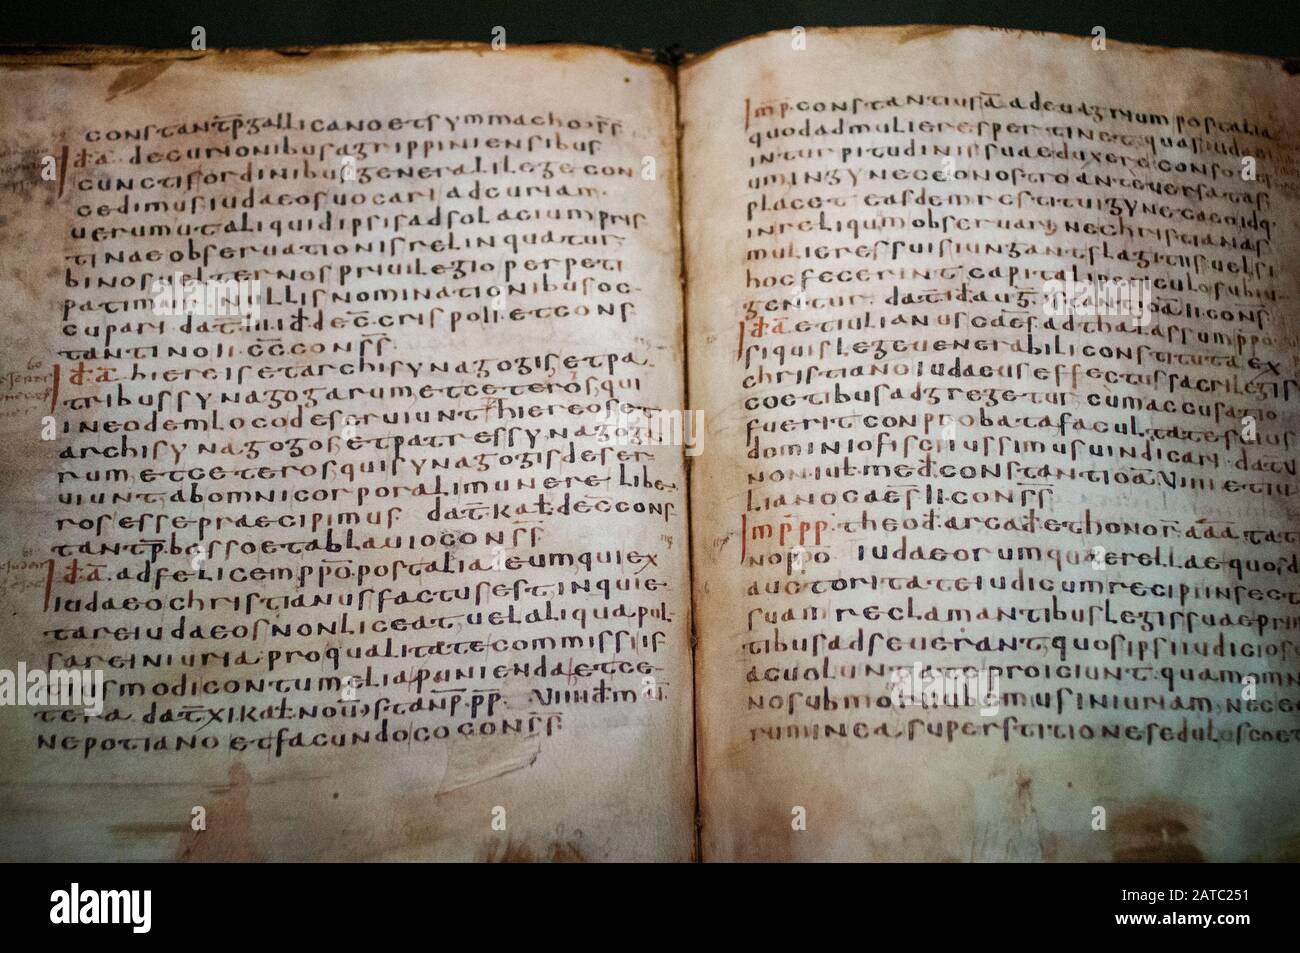 constantp gallicano et symmacho ss
id a decurionibus agrippiniensibus
cunctis ordinibus generali lege con
cedimus iudaeos uocari ad curiam
uerum ut aliquid ipsis ad solacium pris
tinae obseruationis relinquatur
binos uel ternos priuilegio perpeti
patimur nullis nominationibus oc
cupari dat iii id dec crispo ii et cons
tantino ii cc conss
id a hiereis et archisynagogis et pa
tribus synagogarum et ceteros qui
in eodem loco deseruiunt hiereos et
archisynagogos et patres synagoga
rum et ceteros qui synagogis deser
uiunt ab omni corporali munere liber
ros esse praecipimus dat kal dec cons
tantp basso et ablauio conss
id a ad felicem ppo post alia eum qui ex
iudaeo christianus factus est inquie
tare iudaeos non liceat uel aliqua pul
sare iniuria pro qualitate commissi is
tiusmodi contumelia punienda et ce
tera dat xi kal nou stanp pp viii id mai
nepotiano et facundo co conss
imp constantius a ad euagrium post alia
quod ad mulieres pertinet quas iudaei
in turpitudinis suae duxere consortium
in gynaeceo nostro ante uersatas
placet easdem restitui gynaeceo idq
in reliqum obseruari ne christianas
mulieres suis iungant flagitiis uel si
hoc fecerint capitali periculo subiu
gentur dat id aug stantio a ii cons
id a et iulianus caes ad thalassum ppo
si quis lege uenerabili constituta ex
christiano iudaeus effectus sacrilegis
coetibus adgregetur cum accusatio
fuerit conprobata facultates eius
dominio fisci iussimus uindicari dat v
non iul med constantio a viiii et iu
liano caes ii conss
imp pp theod arcad et honor aaa tat
no ppo iudaeorum querellae quosd
auctoritate iudicum recipi in sect
suam reclamantibus legis suae pri
tibus adseuerant quos ipsi iudicio s
ac uoluntate proiciunt quam omn
no submoueri iubemus iniuriam nec e
rum in ea superstitione sedulos coet
alamy
Image ID: 2ATC251
www.alamy.com